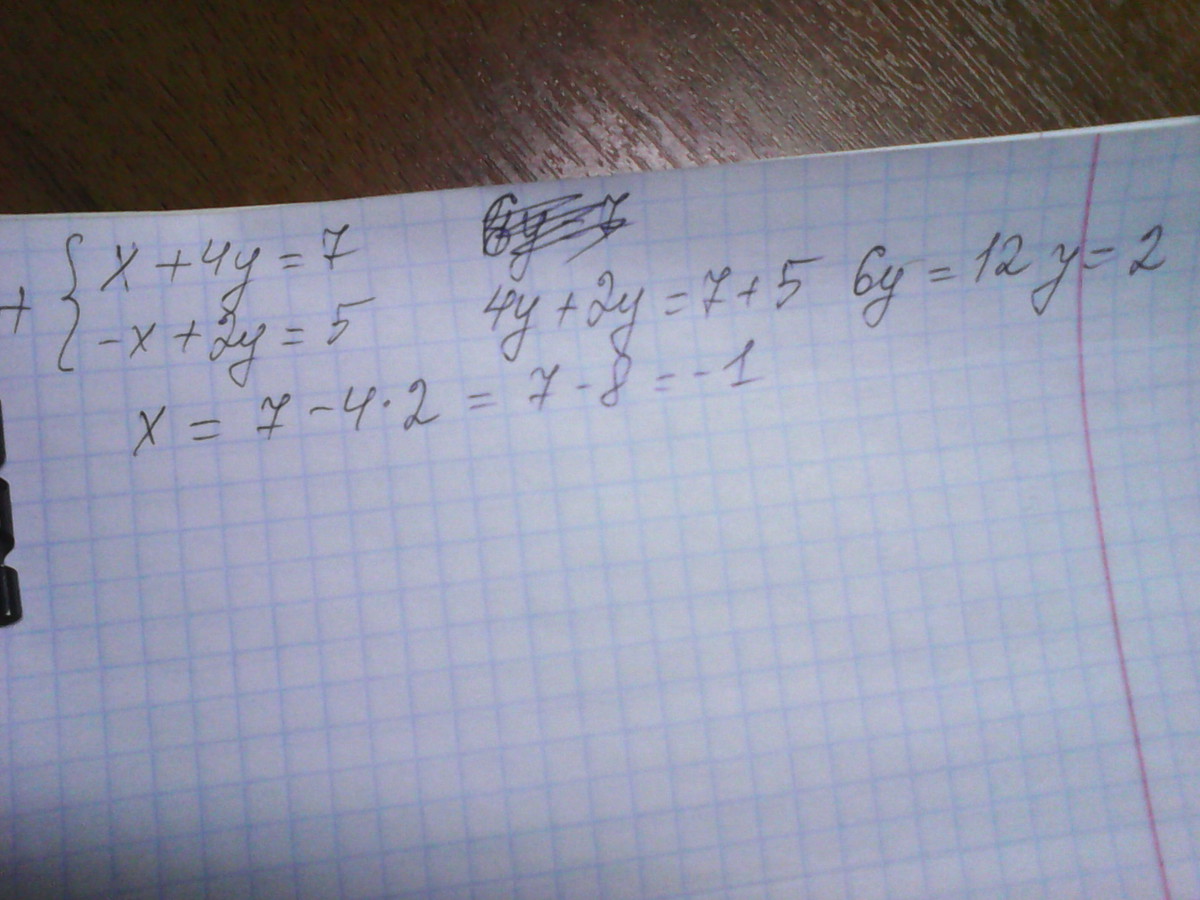 + { x + 4y = 7
-x + 2y = 5
4y + 2y = 7 + 5 6y = 12 y = 2
x = 7 - 4 · 2 = 7 - 8 = -1